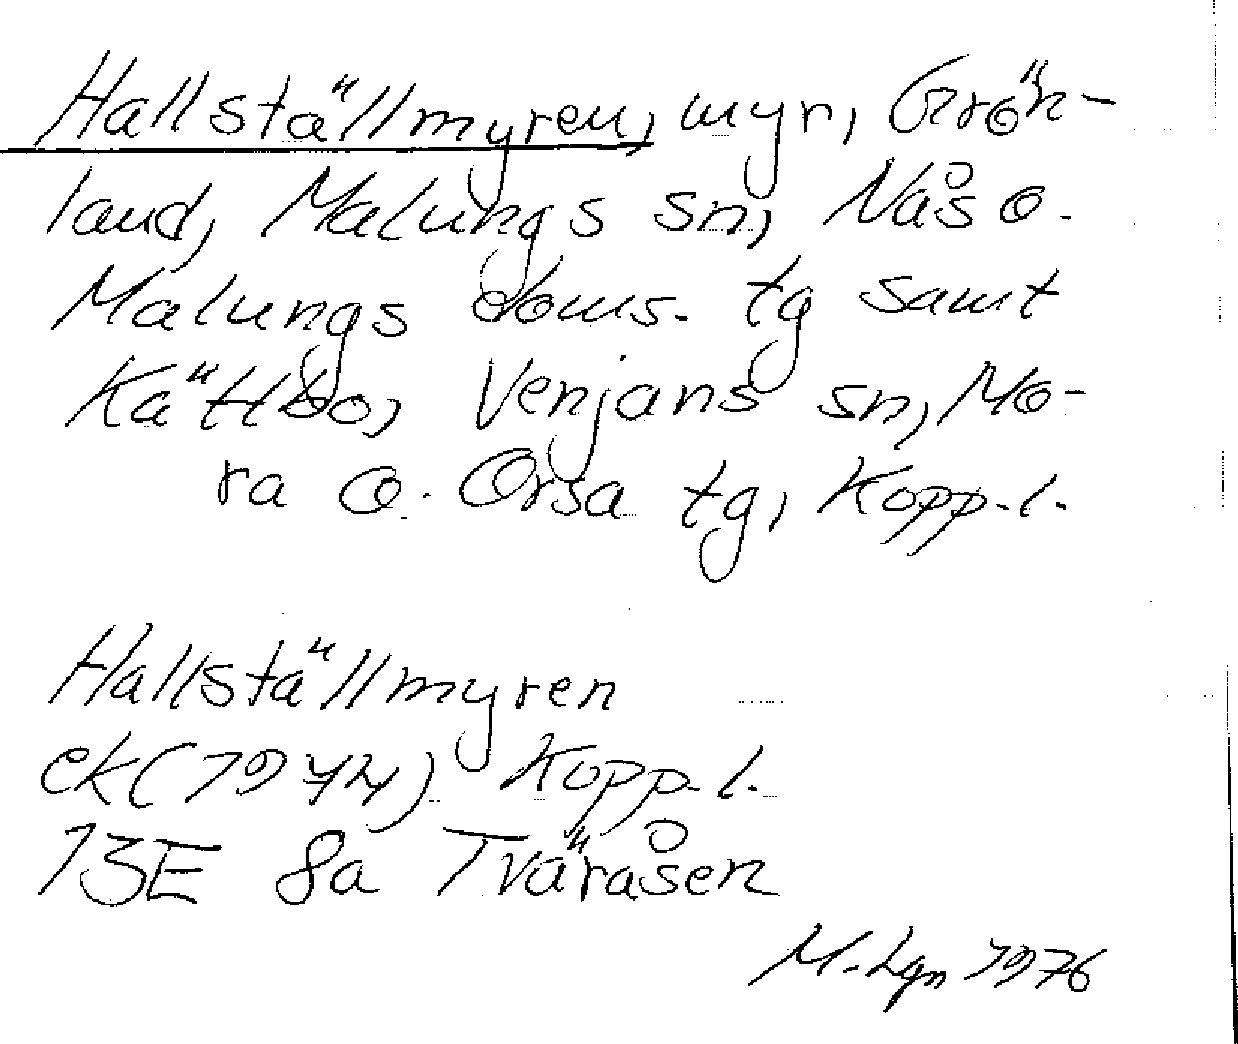 Hallställmyren, myr, Grön-
land, Malungs sn, Nås o.
Malungs doms. tg samt
Kättbo, Venjans sn, Mo-
ra o. Orsa tg, Kopp.l.
Hallställmyren
ek(1974) Kopp.l.
13E 8a Tväråsen
M. Lgn 1976